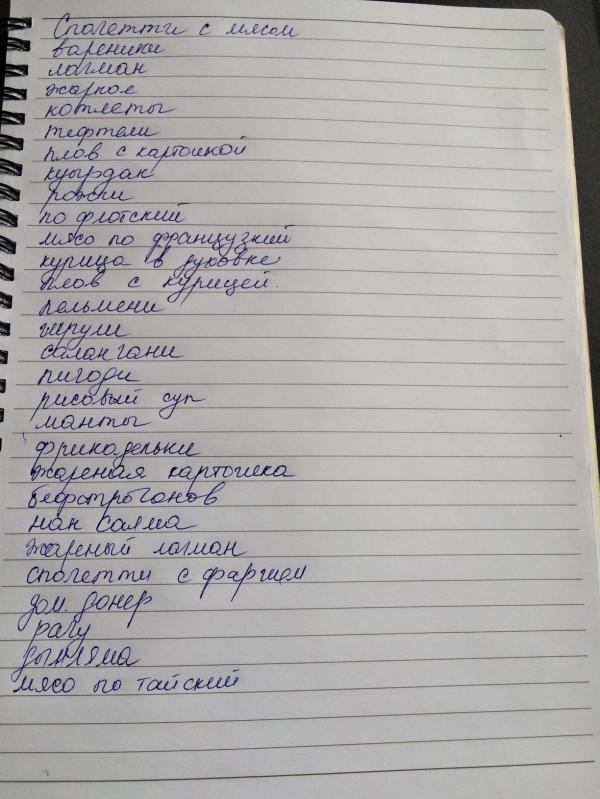 Спагетти с мясом
вареники
лагман
жаркое
котлеты
тефтели
плов с картошкой
куырдак
рожки
по флотский
мясо по французкий
курица в духовке
плов с курицей.
пельмени
ширули
салангани
пигоди
рисовый суп
манты
фрикадельки
жареная картошка
бефстроганов
нан салма
жареный лагман
спагетти с фаршем
дом. донер
рагу
дымляма
мясо по тайский